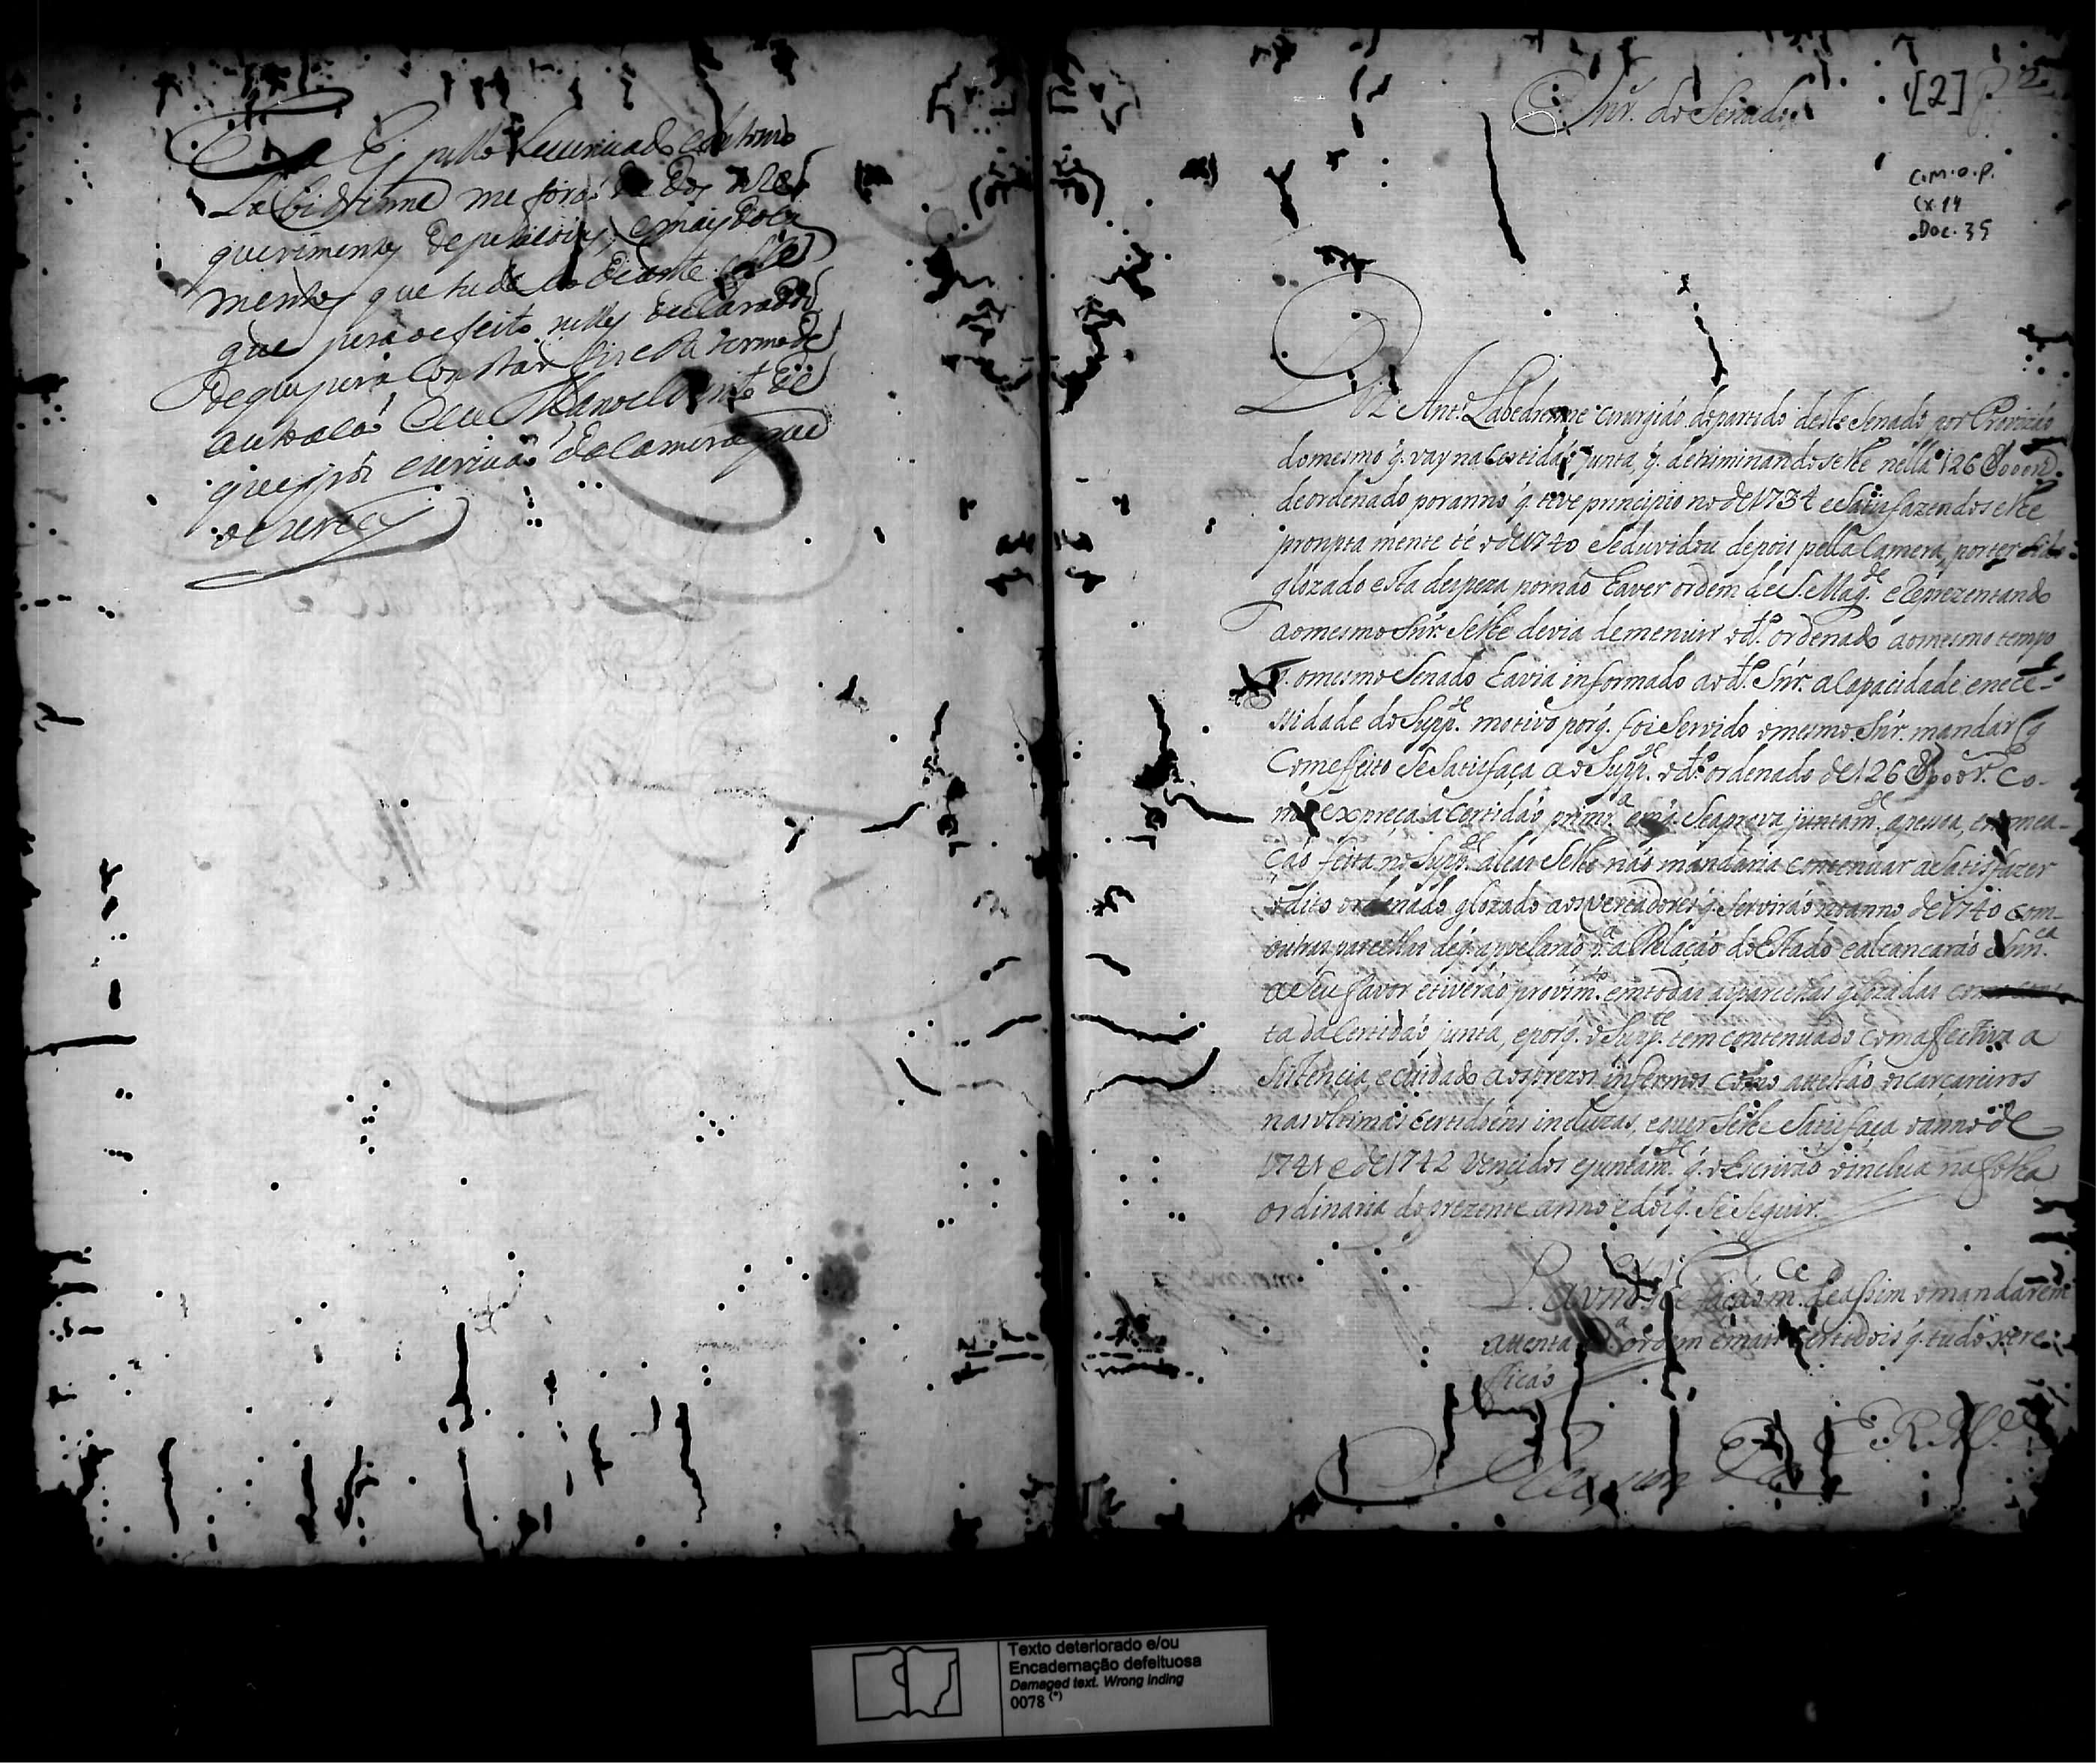 pello Lecenciado Antonio
Labedrenne me forão dados
querimentos de peticois, e mais docu
mentos que tudo ao diante
que pera o efeito nelles declarados
de que pera constar fis este termo de
autoacão eu Manoel
que sou escrivão da camera que
o escrevy
Snr. do Senado
[2]
C.M.O.P.
Cx. 14
Doc. 35
Diz Ant.º Labedrenne cirurgião do partido deste Senado por Provizão
do mesmo q. vay na Certidão junta, q. detriminandoselhe nella 126$000 r.
de ordenado por anno q. teve principio no de 1734 e Satisfazendoselhe
promptamente té o de 1740 se duvidou depois pella Camera, por ter sido
glozado esta despeza por não haver ordem de S. Mag.de e Reprezentando
ao mesmo Snr. se lhe devia demenuir o d.º ordenado ao mesmo tempo
q. o mesmo Senado havia informado ao d.º Snr. a Capacidade e nece-
ssidade do Supp.e motivo porq. foi Servido o mesmo Snr. mandar q
Com effeito se Satisfaça ao Supp.e o d.º ordenado de 126$000 r. Co-
mo expreça a Certidão prim.ra em q. Se aprova juntam.te a pessoa, e nomea-
ção feita no Supp.e aleas se lhe não mandaria contenuar a Satisfazer
o dito ordenado glozado aos vereadores q. servirão no anno de 1740 com
outras parcellas de q. appelarão p.a a Relação do Estado e alcancarão Snn.ca
a Seu favor e tiverão provim.to em todas as parcellas glozadas
ta da Certidão junta, e porq. o Supp.te tem contenuado com a effectiva a
Sistencia e cuidado aos prezos infermos como attestão os carcareiros
nas ultimas certidoens incluzas, e quer se lhe Satisfaça o anno de
1741 e de 1742 vencidos e juntam.te q. o Escrivão o inclua na folha
ordinaria do prezente anno e dos q. se Seguir.
P. a vm.ces lhe fação m.ce de assim o mandarem
attenta a d.a ordem e mais certidois q. tudo vere-
ficão
E. R. M.ce
Texto deteriorado e/ou
Encadernação defeituosa
Damaged text. Wrong inding
0078 (*)